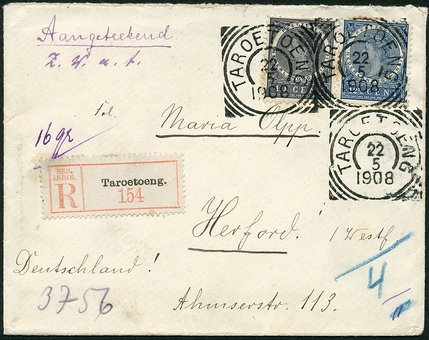 Aangeteekend
Z. W. a. t.
TAROETOENG
22
5
1908
TAROETOENG
22
5
1908
CE
TAROETOENG
22
5
1908
16 gr
Frl.
Maria Olpp.
NED.
INDIE.
R
Taroetoeng.
154
Herford! (Westf
Deutschland!
4
3756
Ahmserstr. 113.